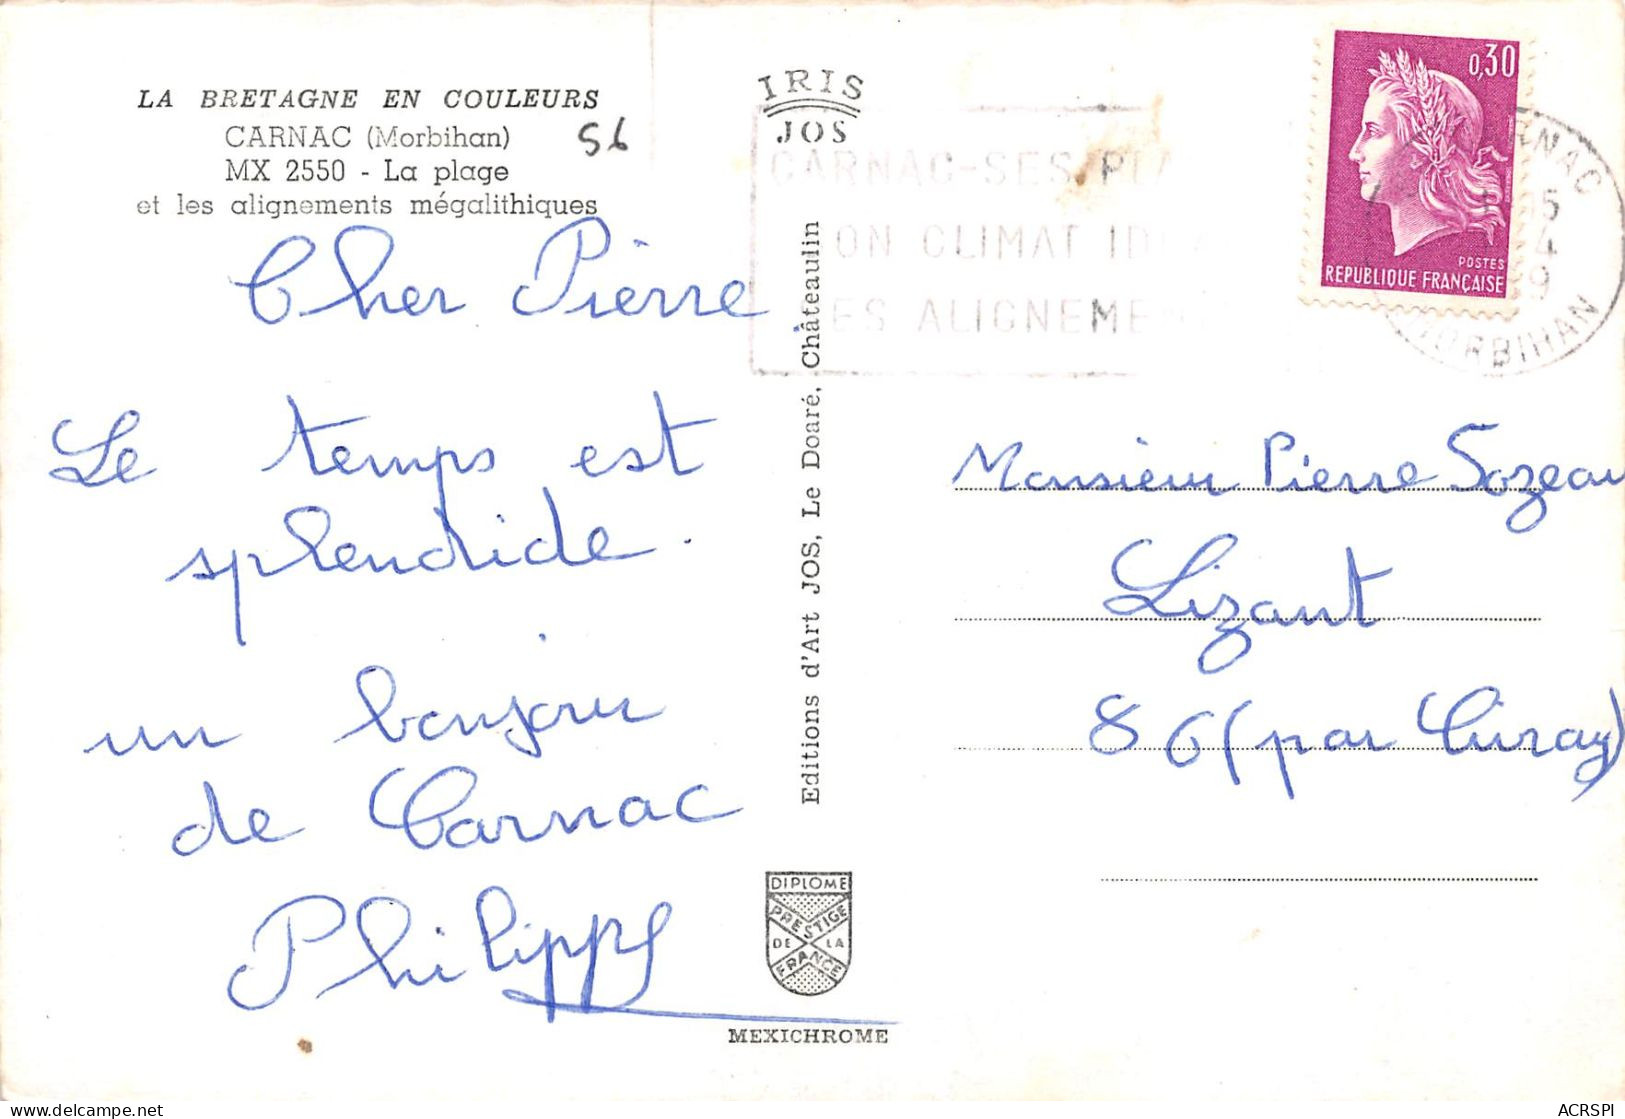 LA BRETAGNE EN COULEURS
CARNAC (Morbihan)
56
MX 2550 - La plage
et les alignements mégalithiques
Cher Pierre
Le temps est
splendide.
un bonjour
de Carnac
Philippe
IRIS
JOS
CARNAC-SES PLA
ON CLIMAT ID
ES ALIGNEME
Editions d'Art JOS, Le Doaré, Châteaulin
DIPLOME
PRESTIGE
DE LA
FRANCE
MEXICHROME
0,30
POSTES
REPUBLIQUE FRANÇAISE
RNAC
15
4
9
MORBIHAN
Monsieur Pierre Sozeau
Lizant
86 (par Civray)
delcampe.net
ACRSPI